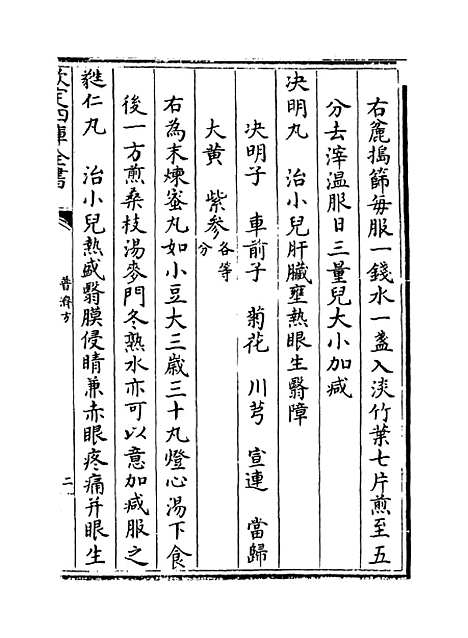 右麄搗篩每服一錢水一盞入淡竹葉七片煎至五
分去滓温服日三量兒大小加减
决明丸　治小兒肝臟壅熱眼生翳障
决明子　車前子　菊花　川芎　宣連　當歸
大黄　紫參各等分
右為末煉蜜丸如小豆大三歲三十丸燈心湯下食
後一方煎桑枝湯麥門冬熟水亦可以意加减服之
蕤仁丸　治小兒熱盛翳膜侵睛兼赤眼疼痛并眼生
欽定四庫全書
普濟方
二